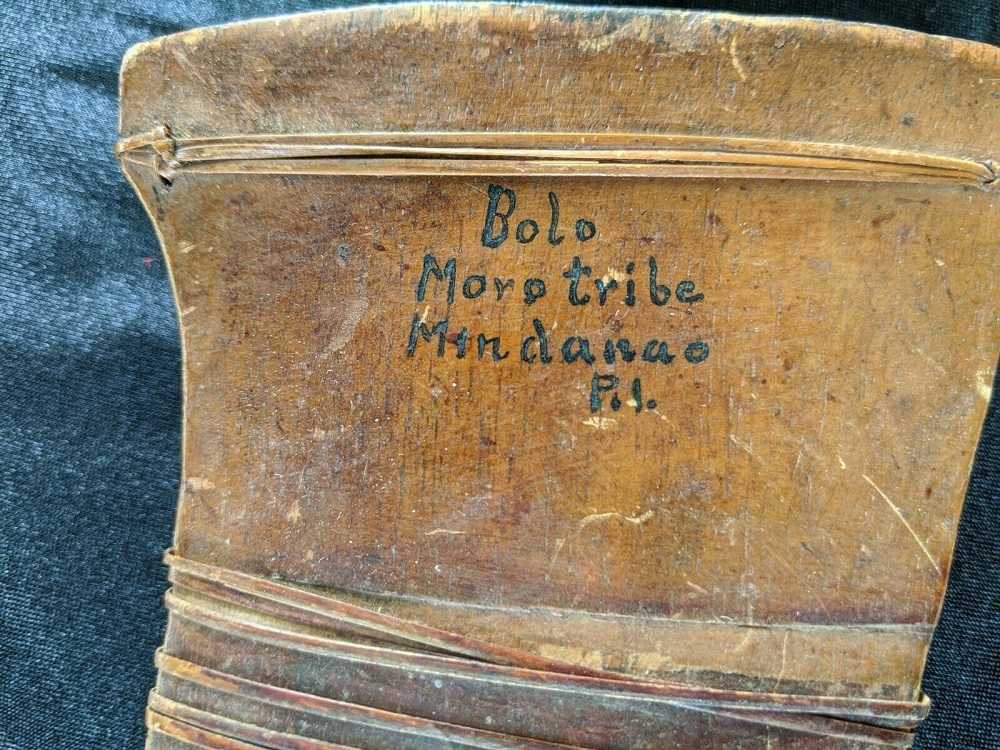 Bolo
Moro tribe
Mindanao
P.I.